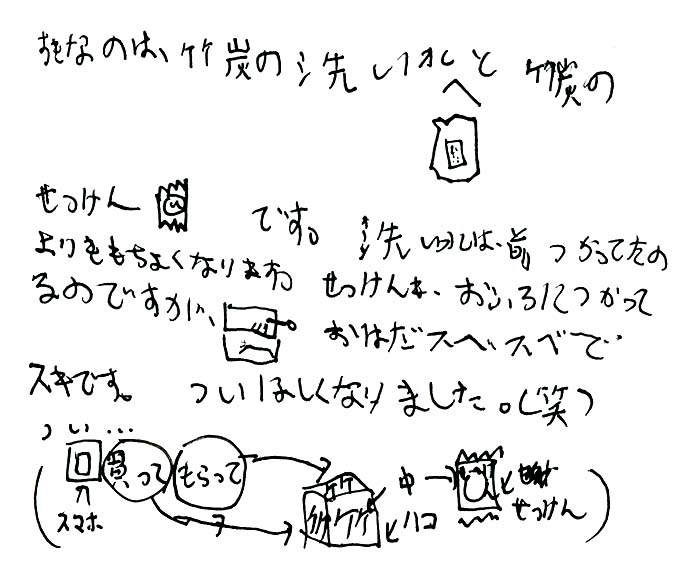 おもなのは、竹炭の洗いオレと竹炭の
せっけん です。洗いオレは、前つかってたの
よりきもちよくなりまわ せっけんは、おふろにつかって
るのですが、 おはだスベスベで
スキです。ついほしくなりました。(笑)
つい…
(買って もらって 中
竹 竹 竹 ハコ せっけん)
スマホ